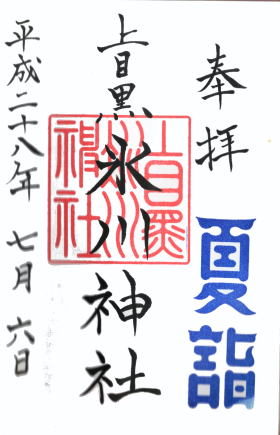 奉拝
夏詣
上目黒氷川神社
上目黒氷川神社
平成二十八年 七月 六日